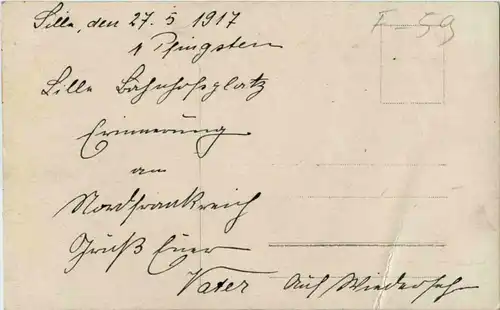 Lille, den 27.5 1917
1 Pfingsten
Lille Bahnhofsplatz
Erinnerung
an
Nordfrankreich
Gruß Euer
Vater Auf Wiederseh
F-59